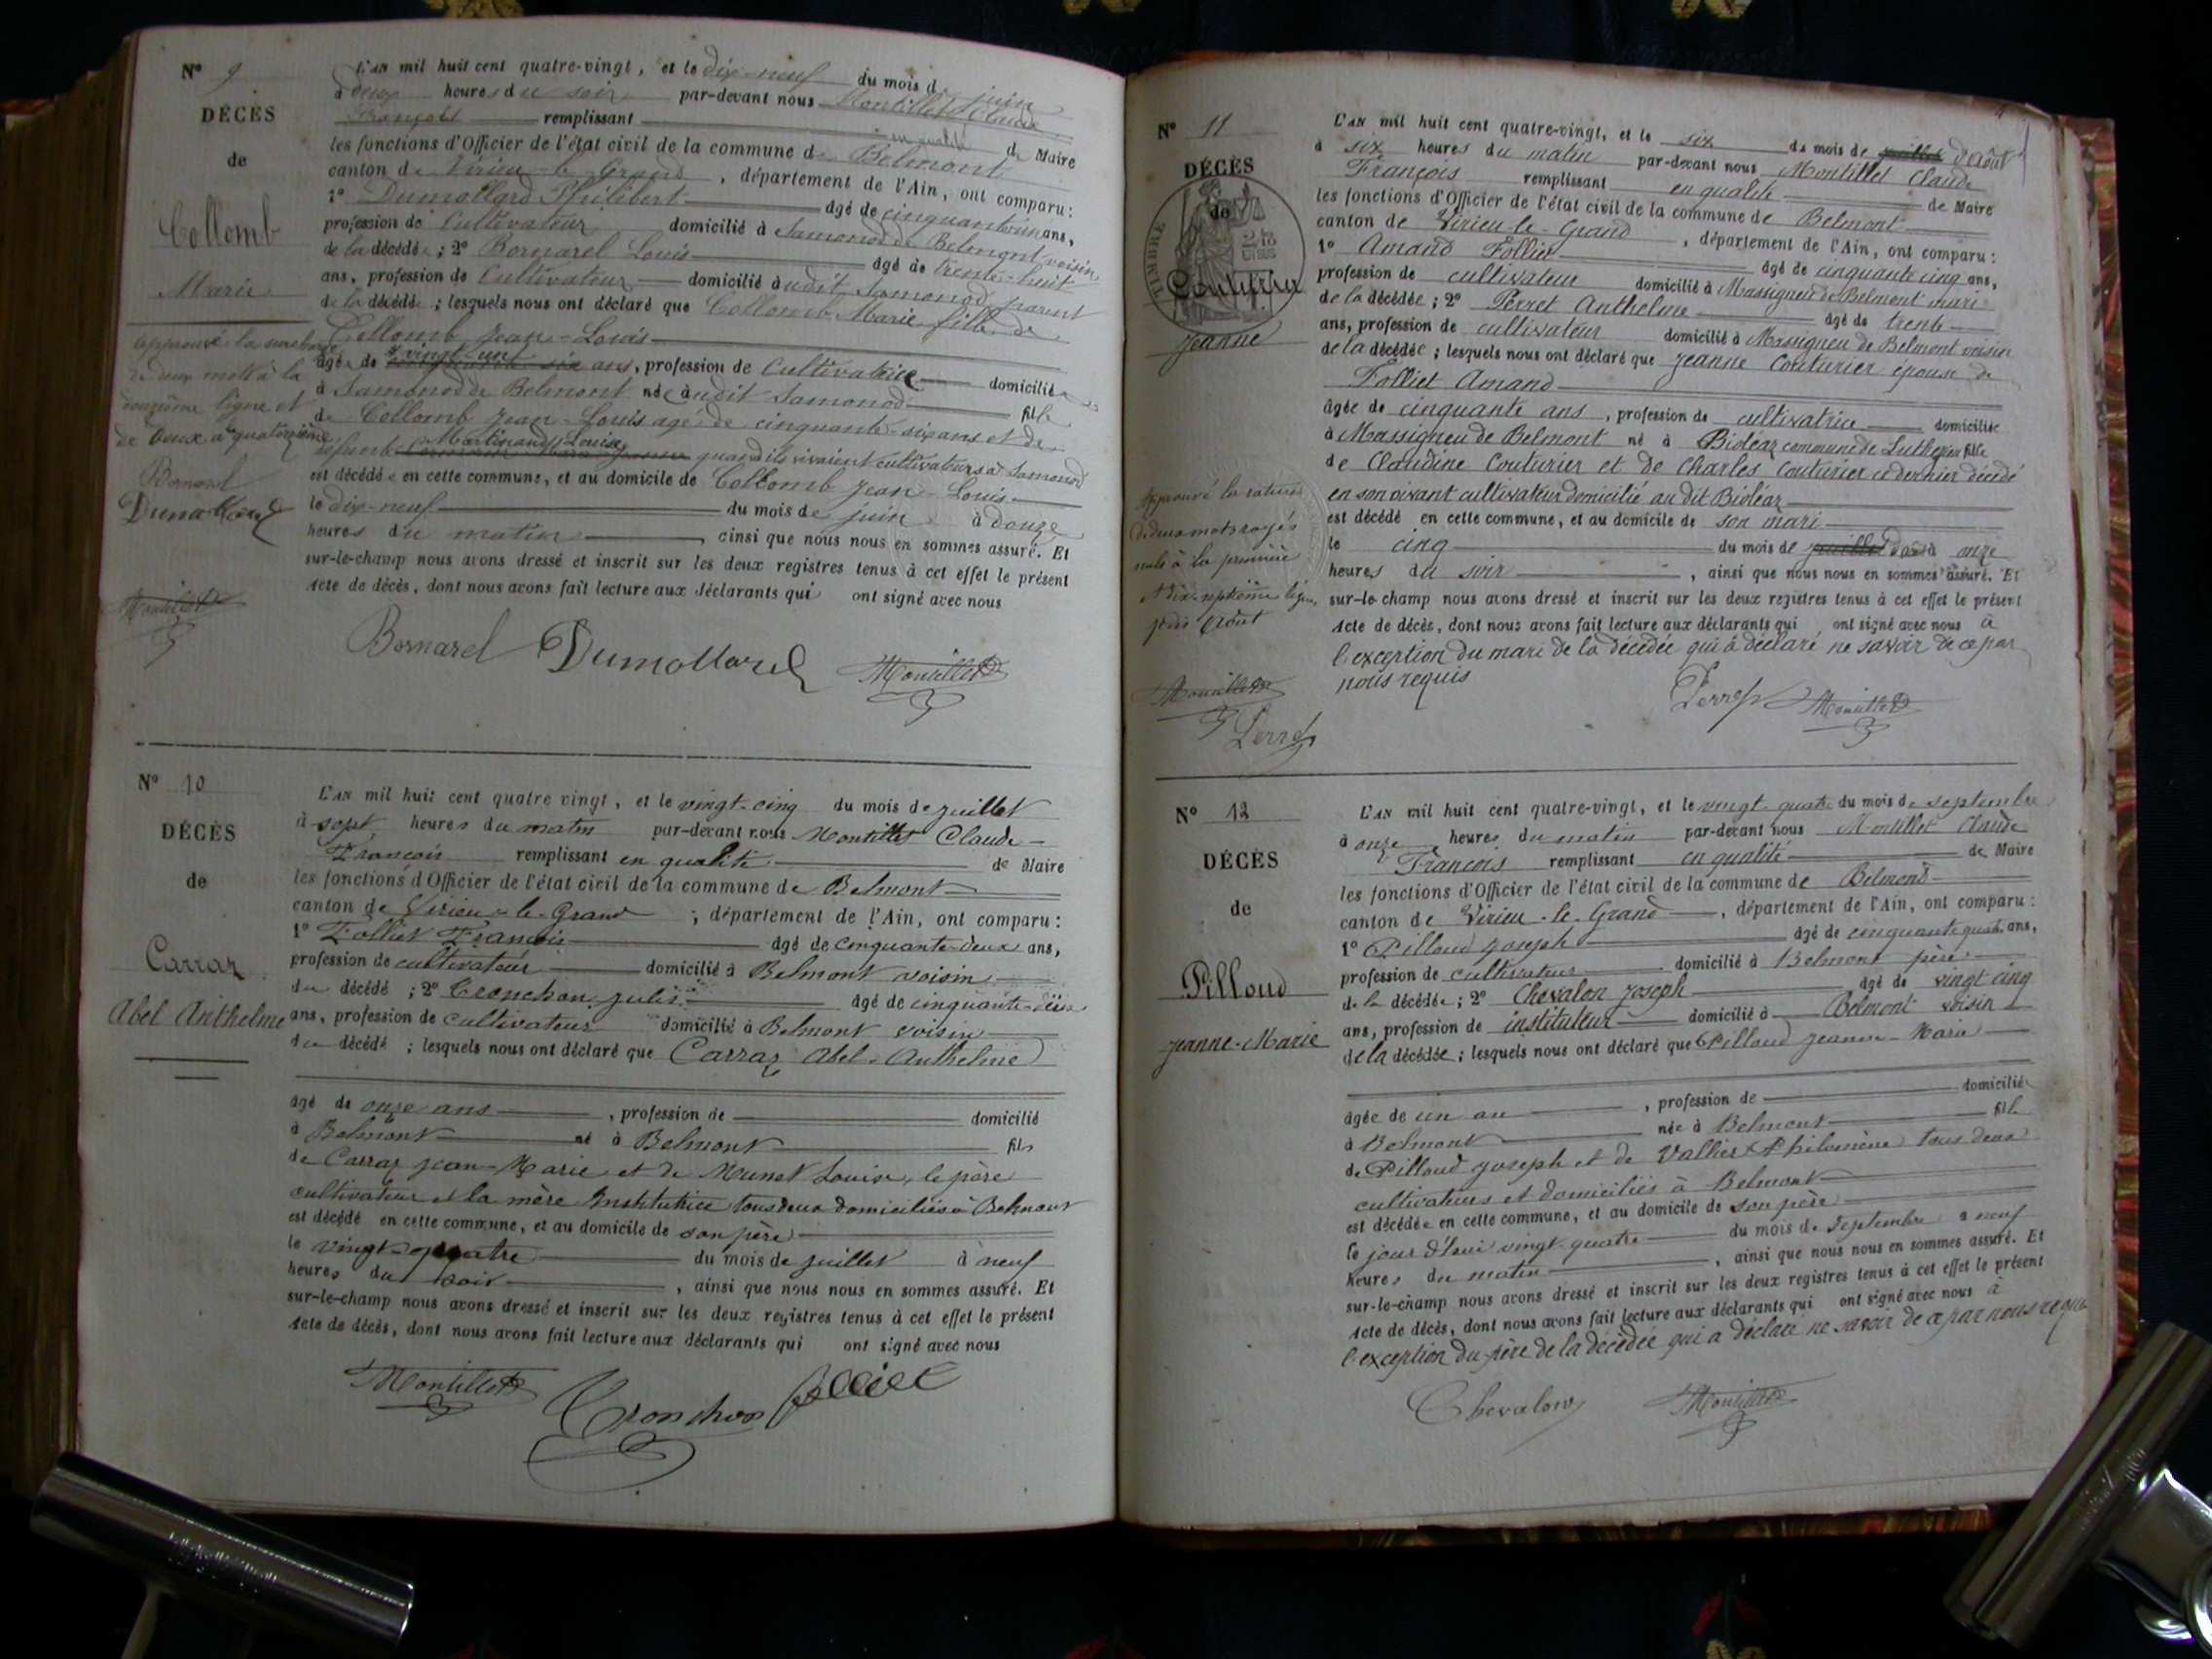 N° 9
DÉCÈS
de
Collomb
Marie
approuvé la surcharge
de deux mots à la
douzième ligne et
de deux à quatorzième
Bornarel
Dumollard
Montillet
L'AN mil huit cent quatre-vingt, et le dix-neuf du mois de juin
à deux heures du soir par-devant nous Montillet Claude
François remplissant en qualité de Maire
les fonctions d'Officier de l'état civil de la commune de Belmont
canton de Virieu-le-Grand, département de l'Ain, ont comparu:
1° Dumollard Philibert âgé de cinquante ans,
profession de Cultivateur domicilié à Samonod de Belmont voisin
de la décédée; 2° Bornarel Louis âgé de trente-huit
ans, profession de Cultivateur domicilié à udit Samonod parent
de la décédée; lesquels nous ont déclaré que Collomb Marie fille de
Collomb Jean-Louis
âgée de vingt-un ans, profession de Cultivatrice domiciliée
à Samonod de Belmont née à udit Samonod fille
de Collomb Jean-Louis agé de cinquante-six ans et de
défunte Martinand Louise quand ils vivaient cultivateurs à Samonod
est décédée en cette commune, et au domicile de Collomb Jean-Louis
le dix-neuf du mois de juin à douze
heures du matin, ainsi que nous nous en sommes assuré. Et
sur-le-champ nous avons dressé et inscrit sur les deux registres tenus à cet effet le présent
acte de décès, dont nous avons fait lecture aux déclarants qui ont signé avec nous
Bornarel Dumollard Montillet
N° 10
DÉCÈS
de
Carraz
Abel Anthelme
L'AN mil huit cent quatre vingt, et le vingt-cinq du mois de juillet
à sept heures du matin par-devant nous Montillet Claude-
François remplissant en qualité de Maire
les fonctions d'Officier de l'état civil de la commune de Belmont
canton de Virieu-le-Grand, département de l'Ain, ont comparu:
1° Folliet François âgé de cinquante-deux ans,
profession de cultivateur domicilié à Belmont voisin
du décédé; 2° Tronchon Julis âgé de cinquante-deux
ans, profession de cultivateur domicilié à Belmont voisin
du décédé; lesquels nous ont déclaré que Carraz Abel-Anthelme
âgé de onze ans, profession de domicilié
à Belmont né à Belmont fils
de Carraz Jean-Marie et de Munet Louise, le père
cultivateur et la mère Institutrice tous deux domiciliés à Belmont
est décédé en cette commune, et au domicile de son père
le vingt-quatre du mois de juillet à neuf
heures du soir, ainsi que nous nous en sommes assuré. Et
sur-le-champ nous avons dressé et inscrit sur les deux registres tenus à cet effet le présent
acte de décès, dont nous avons fait lecture aux déclarants qui ont signé avec nous
Montillet Tronchon Folliet
N° 11
DÉCÈS
de
TIMBRE
Couturier
Jeanne
approuvé la rature
de deux mots rayés
nuls à la première
et dix-septième ligne
Août
Montillet
Perret
L'AN mil huit cent quatre-vingt, et le six du mois de juillet d'août
à six heures du matin par-devant nous Montillet Claude
François remplissant en qualité de Maire
les fonctions d'Officier de l'état civil de la commune de Belmont
canton de Virieu-le-Grand, département de l'Ain, ont comparu:
1° Amand Folliet âgé de cinquante cinq ans,
profession de cultivateur domicilié à Massigneu de Belmont mari
de la décédée; 2° Perret Anthelme âgé de trente
ans, profession de cultivateur domicilié à Massigneu de Belmont voisin
de la décédée; lesquels nous ont déclaré que Jeanne Couturier épouse de
Folliet Amand
âgée de cinquante ans, profession de cultivatrice domiciliée
à Massigneu de Belmont né à Bioléaz commune de Luthezieu fille
de Claudine Couturier et de Charles Couturier ce dernier décédé
en son vivant cultivateur domicilié au dit Bioléaz
est décédé en cette commune, et au domicile de son mari
le cinq du mois de juillet d'août à onze
heures du soir, ainsi que nous nous en sommes assuré. Et
sur-le-champ nous avons dressé et inscrit sur les deux registres tenus à cet effet le présent
acte de décès, dont nous avons fait lecture aux déclarants qui ont signé avec nous à
l'exception du mari de la décédée qui a déclaré ne savoir de ce par
nous requis
Perret Montillet
N° 12
DÉCÈS
de
Pilloud
Jeanne-Marie
L'AN mil huit cent quatre-vingt, et le vingt-quatre du mois de septembre
à onze heures du matin par-devant nous Montillet Claude
François remplissant en qualité de Maire
les fonctions d'Officier de l'état civil de la commune de Belmont
canton de Virieu-le-Grand, département de l'Ain, ont comparu:
1° Pilloud Joseph âgé de cinquante quatre ans,
profession de cultivateur domicilié à Belmont père
de la décédée; 2° Chevalon Joseph âgé de vingt cinq
ans, profession de instituteur domicilié à Belmont voisin
de la décédée; lesquels nous ont déclaré que Pilloud Jeanne-Marie
âgée de un an, profession de domiciliée
à Belmont née à Belmont fille
de Pilloud Joseph et de Vallier Philomène tous deux
cultivateurs et domiciliés à Belmont
est décédée en cette commune, et au domicile de son père
le jour d'hui vingt-quatre du mois de septembre à neuf
heures du matin, ainsi que nous nous en sommes assuré. Et
sur-le-champ nous avons dressé et inscrit sur les deux registres tenus à cet effet le présent
acte de décès, dont nous avons fait lecture aux déclarants qui ont signé avec nous à
l'exception du père de la décédée qui a déclaré ne savoir de ce par nous requis
Chevalon Montillet